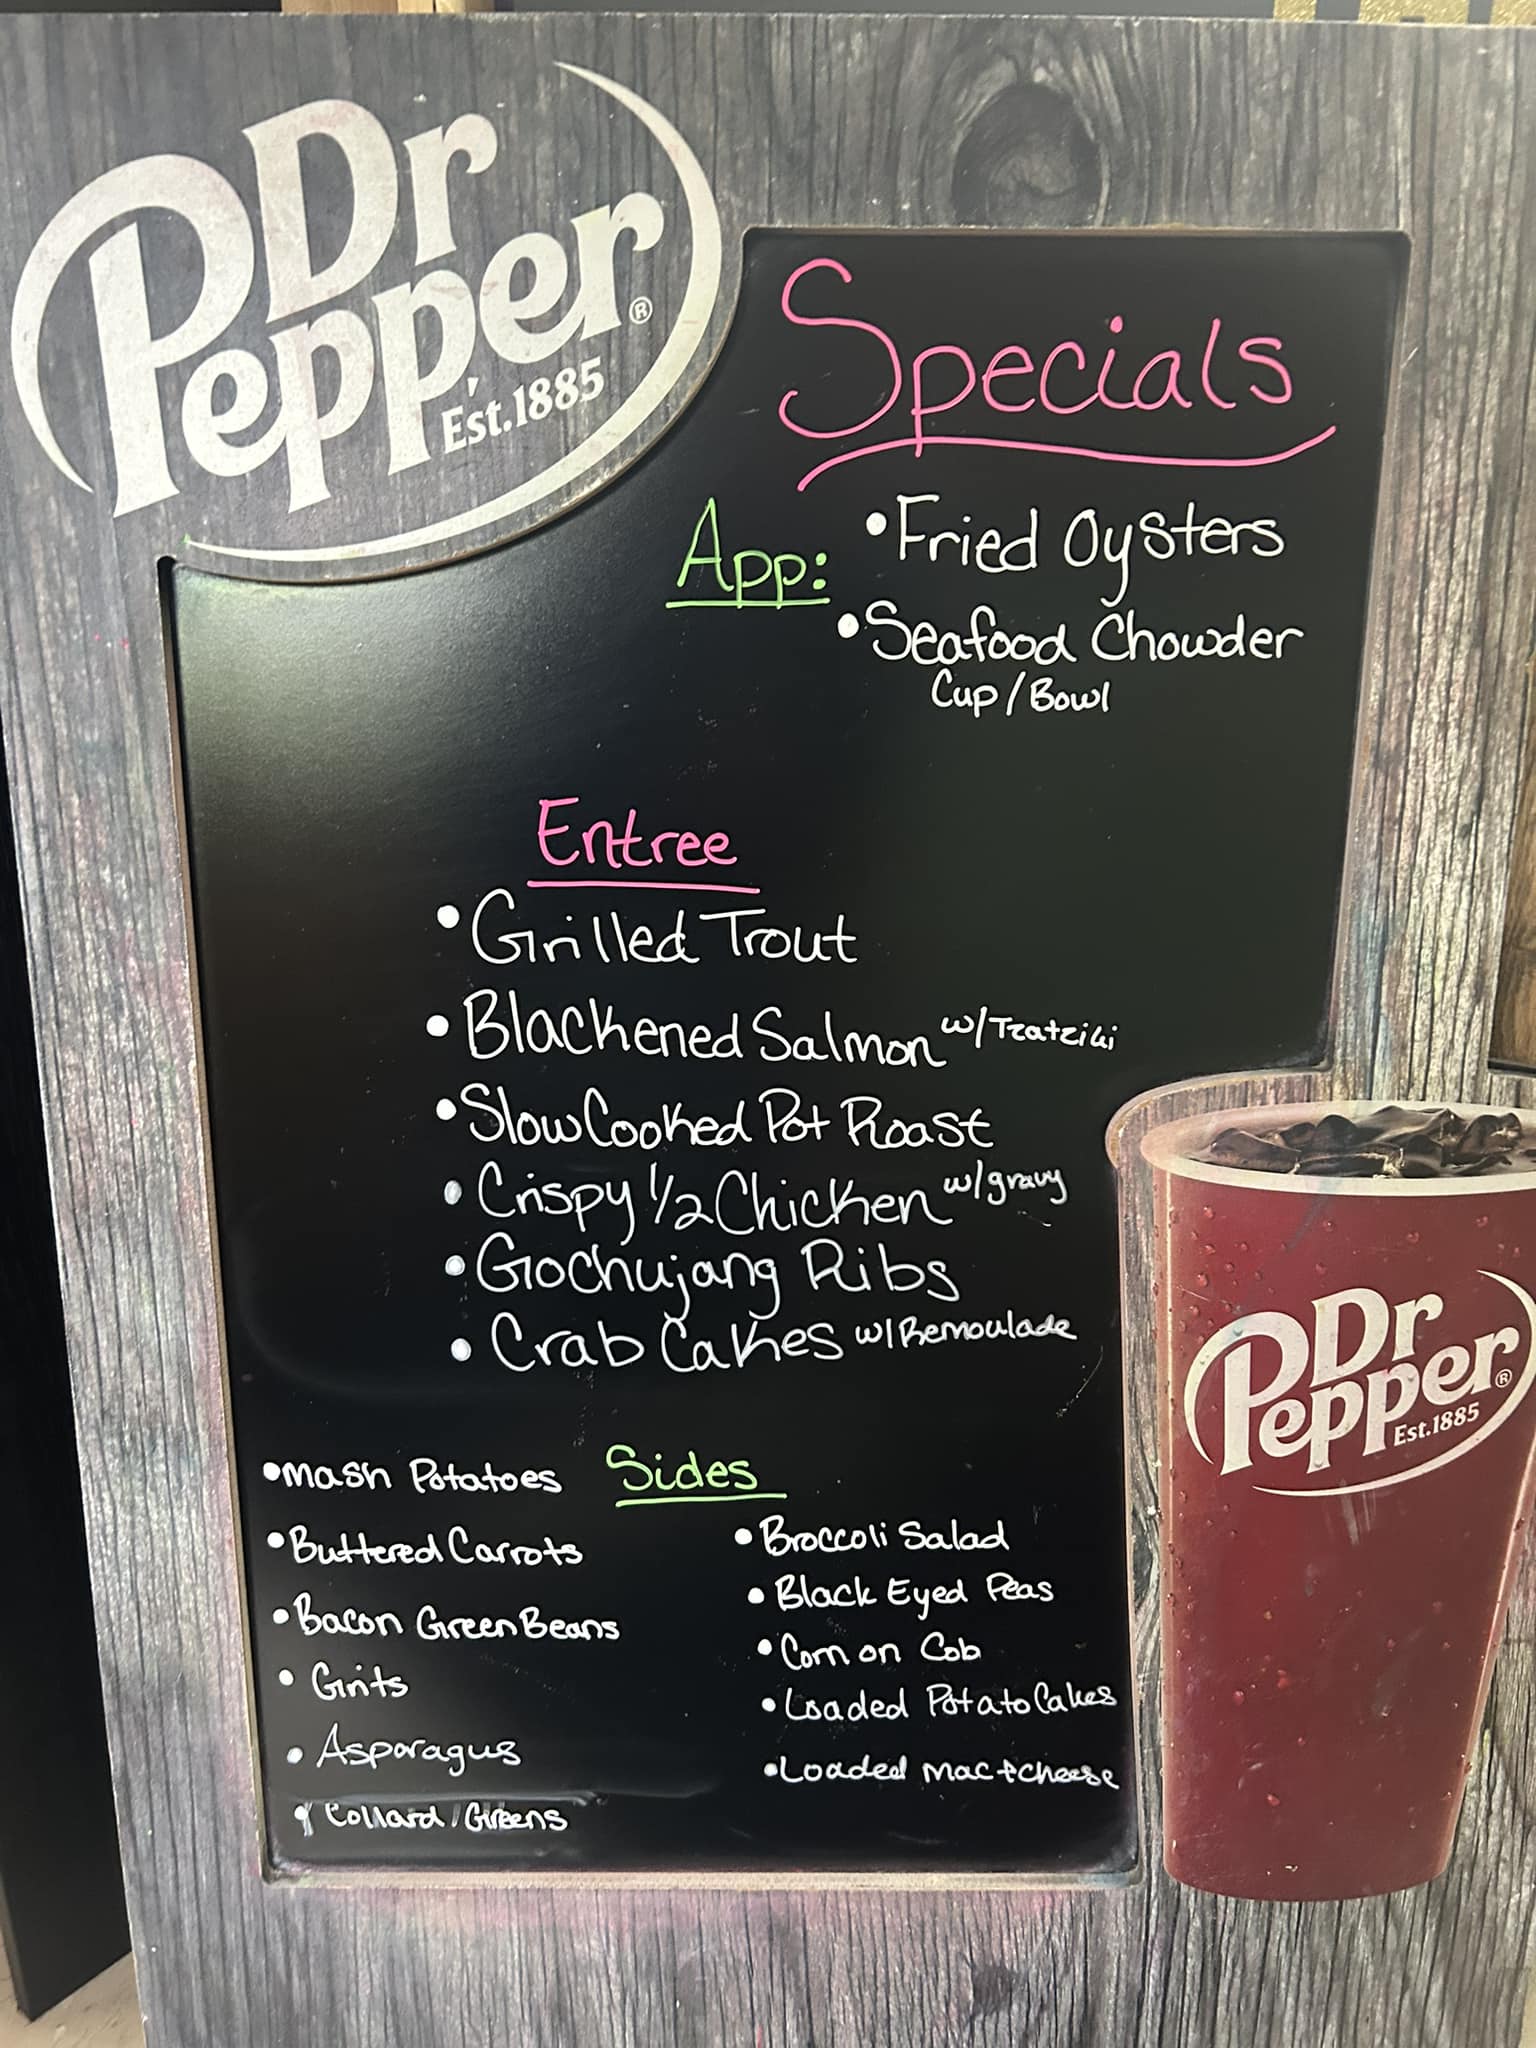 Dr
Pepper®
Est. 1885
Specials
App:
•Fried Oysters
•Seafood Chowder
Cup/Bowl
Entree
•Grilled Trout
•Blackened Salmon w/Tzatziki
•Slow Cooked Pot Roast
•Crispy 1/2 Chicken w/gravy
•Gochujang Ribs
•Crab Cakes w/Remoulade
Sides
•Mash Potatoes
•Buttered Carrots
•Bacon Green Beans
•Grits
•Asparagus
•Collard Greens
•Broccoli Salad
•Black Eyed Peas
•Corn on Cob
•Loaded Potato Cakes
•Loaded mac + cheese
Dr
Pepper®
Est. 1885